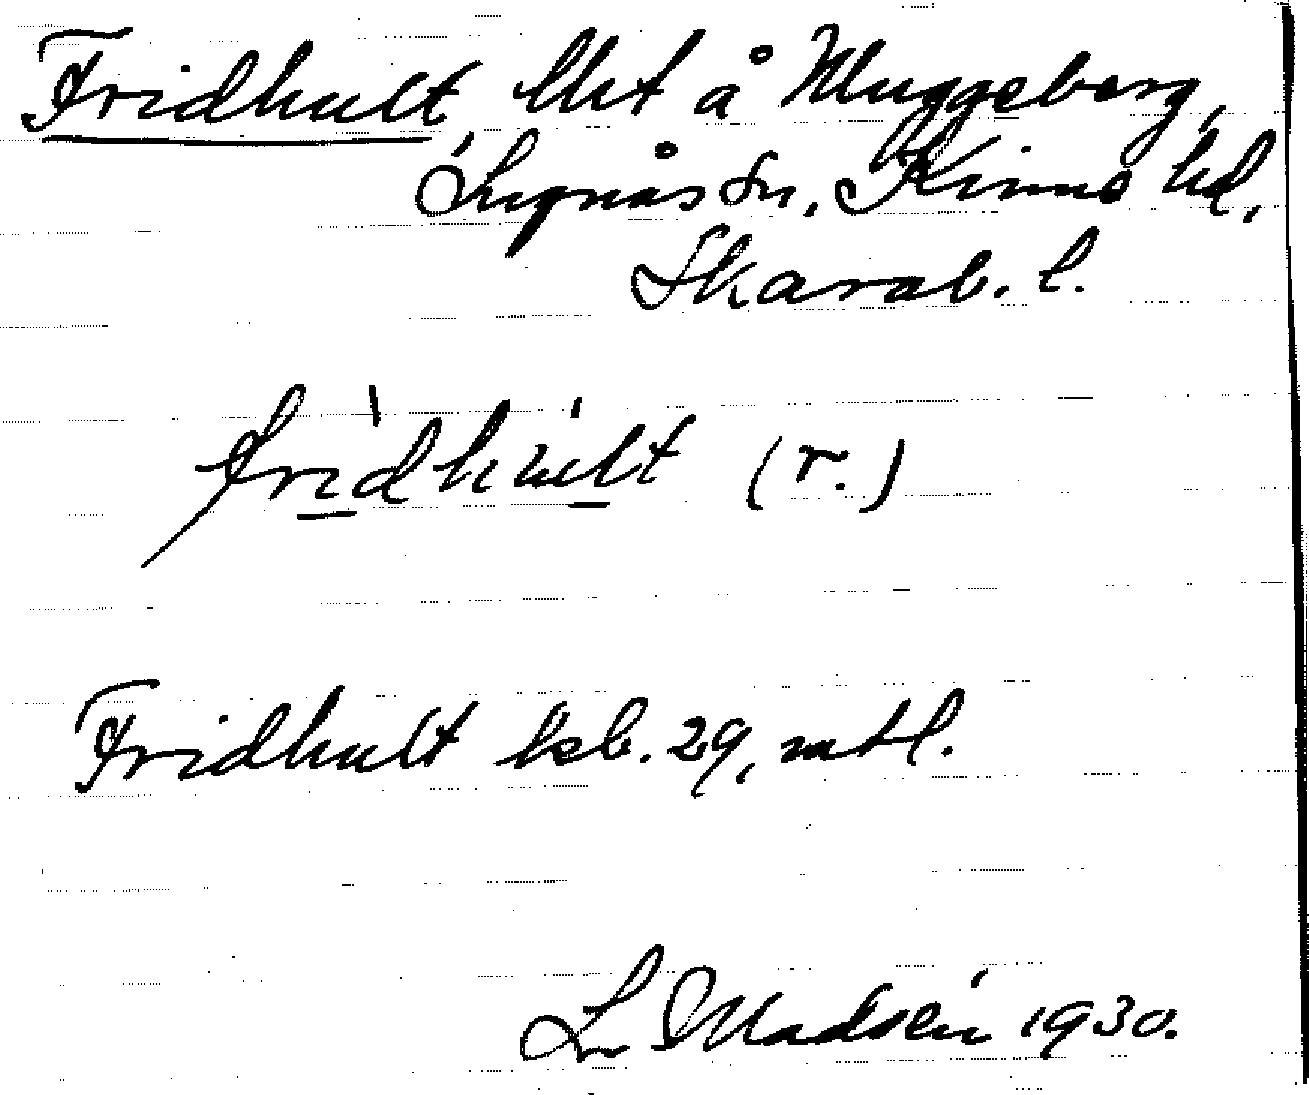 Fridhult lht å Muggeberg,
Lugnås sn, Kinne hd,
Skarab. l.
fri̱dhu̱lt (r.)
Fridhult ksb. 29, mtl.
L Madsén 1930.